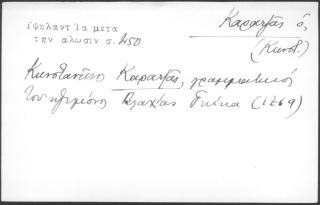 Υψηλαντ Τα μετα
την αλωσιν σ. 450
Καρατζᾶς ὁ,
(Κωνστ.)
Κωνσταντῖνος Καρατζᾶς, γραμματικὸς
τοῦ ἡγεμόνος Βλαχίας Γκίκα (1769)